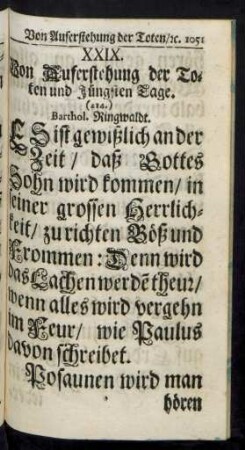 Von Auferstehung der Toten/ꝛc. 1051
XXIX.
Von Auferstehung der To-
ten und Jüngsten Tage.
(212.)
Barthol. Ringwaldt.
ES ist gewißlich an der
Zeit / daß Gottes
Sohn wird kommen / in
seiner grossen Herrlich-
keit / zu richten Böß und
Frommen: Denn wird
das Lachen werdē theur /
wenn alles wird vergehn
im Feur / wie Paulus
davon schreibet.
Posaunen wird man
hören